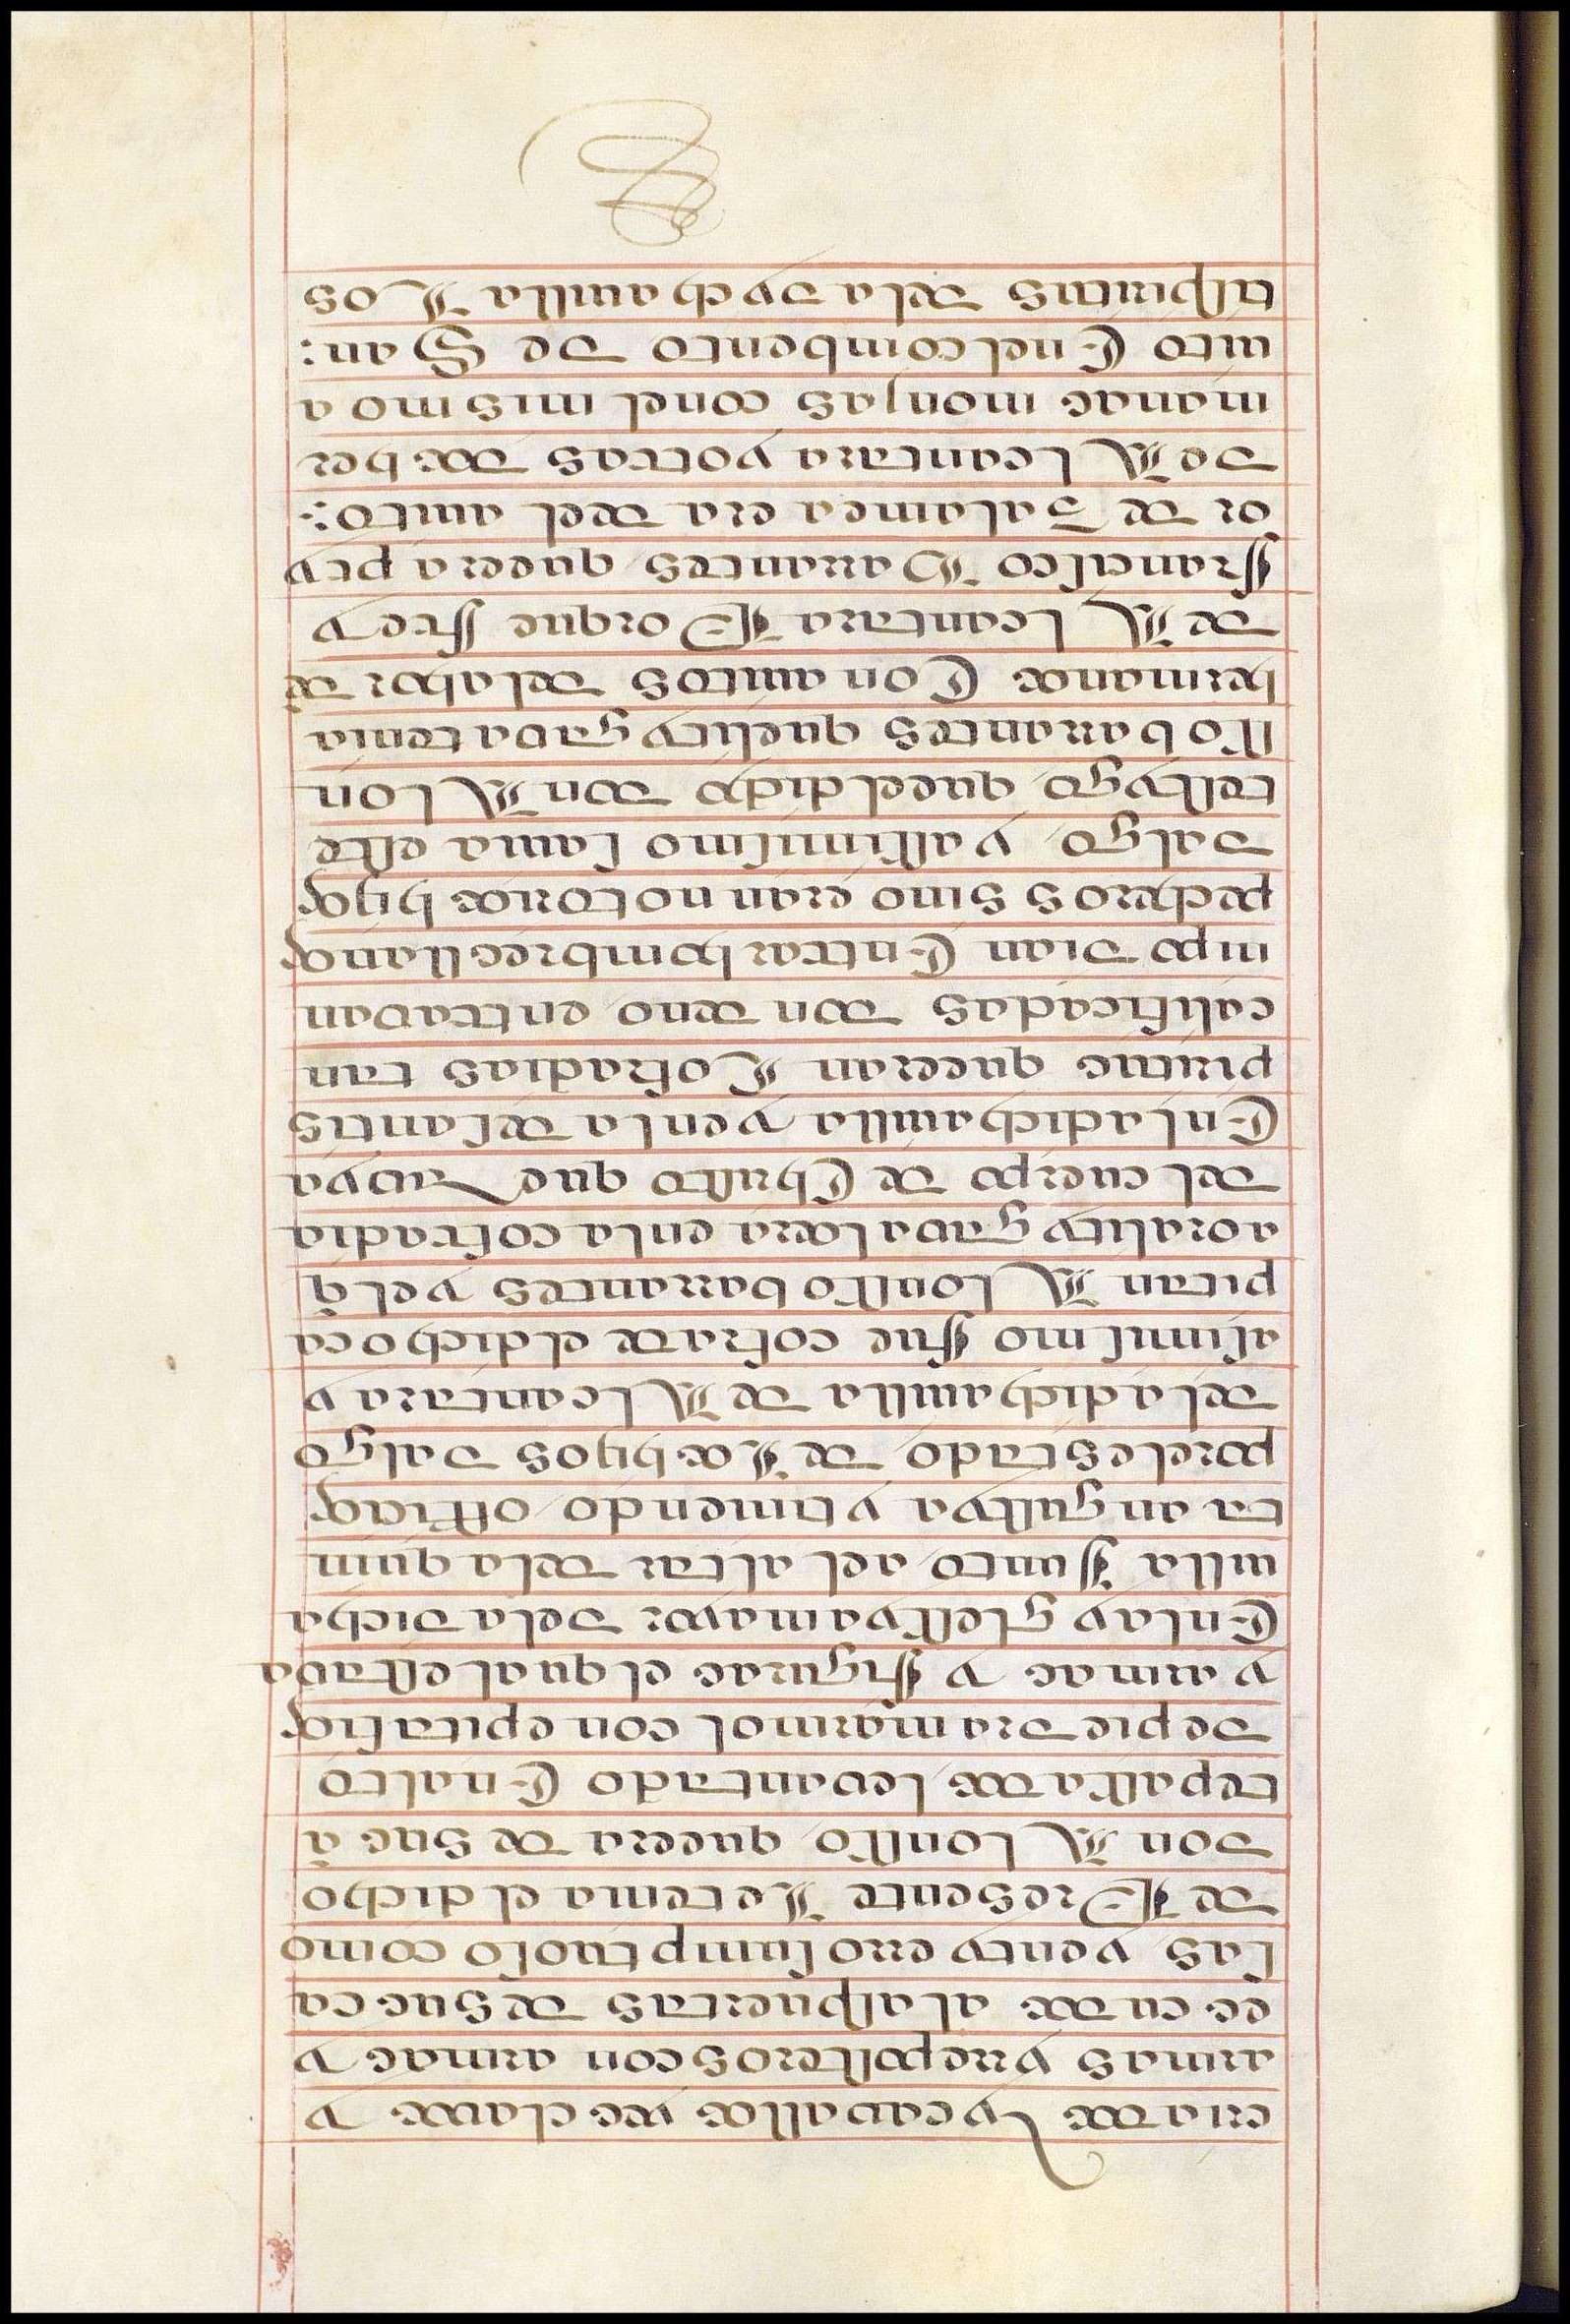 criados y cauallos y esclauos y
armas y reposteros con armas y
escudos a las puertas de sus ca
sas y entyerro sumptuoso como
de Presente le tenia el dicho
Don Alonsso que era de sus a
tepassados leuantado En alto
De piedra marmol con epitafios
y armas y figuras el qual estaua
En la yglessia mayor De la Dicha
uilla junto al altar de la quin
ta angustia y tiniendo officios
por el estado de Los hijos Dalgo
de la dicha uilla de Alcantara y
asimismo fue cofrade el dicho ca
pitan Alonsso barrantes y el q
aora litygaua lo era en la cofradia
del cuerpo de Christo que Auya
En la dicha uilla y en la de santis
piritus que eran Cofradias tan
calificadas donde no entrauan
ni podian Entrar hombres llanos
pecheros sino eran notorios hijos
Dalgo y assimismo sauia este
testygo que el dicho don Alon
sso barrantes que litygaua tenia
hermanos Con auitos de la hor de
de Alcantara Porque frey
françisco Barrantes que era pry
or de Zalamea era del auito:
De Alcantara y otras dos her
manas monjas con el mismo a
uito En el conbento De San:
tispiritus de la Dycha uilla Los